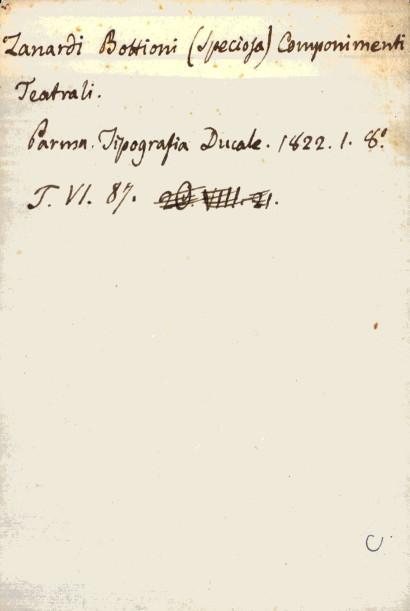 Zanardi Bottioni (Speciosa) Componimenti
Teatrali.
Parma. Tipografia Ducale. 1822. 1. 8.º
T. VI. 87. 20. VIII. 21.
C